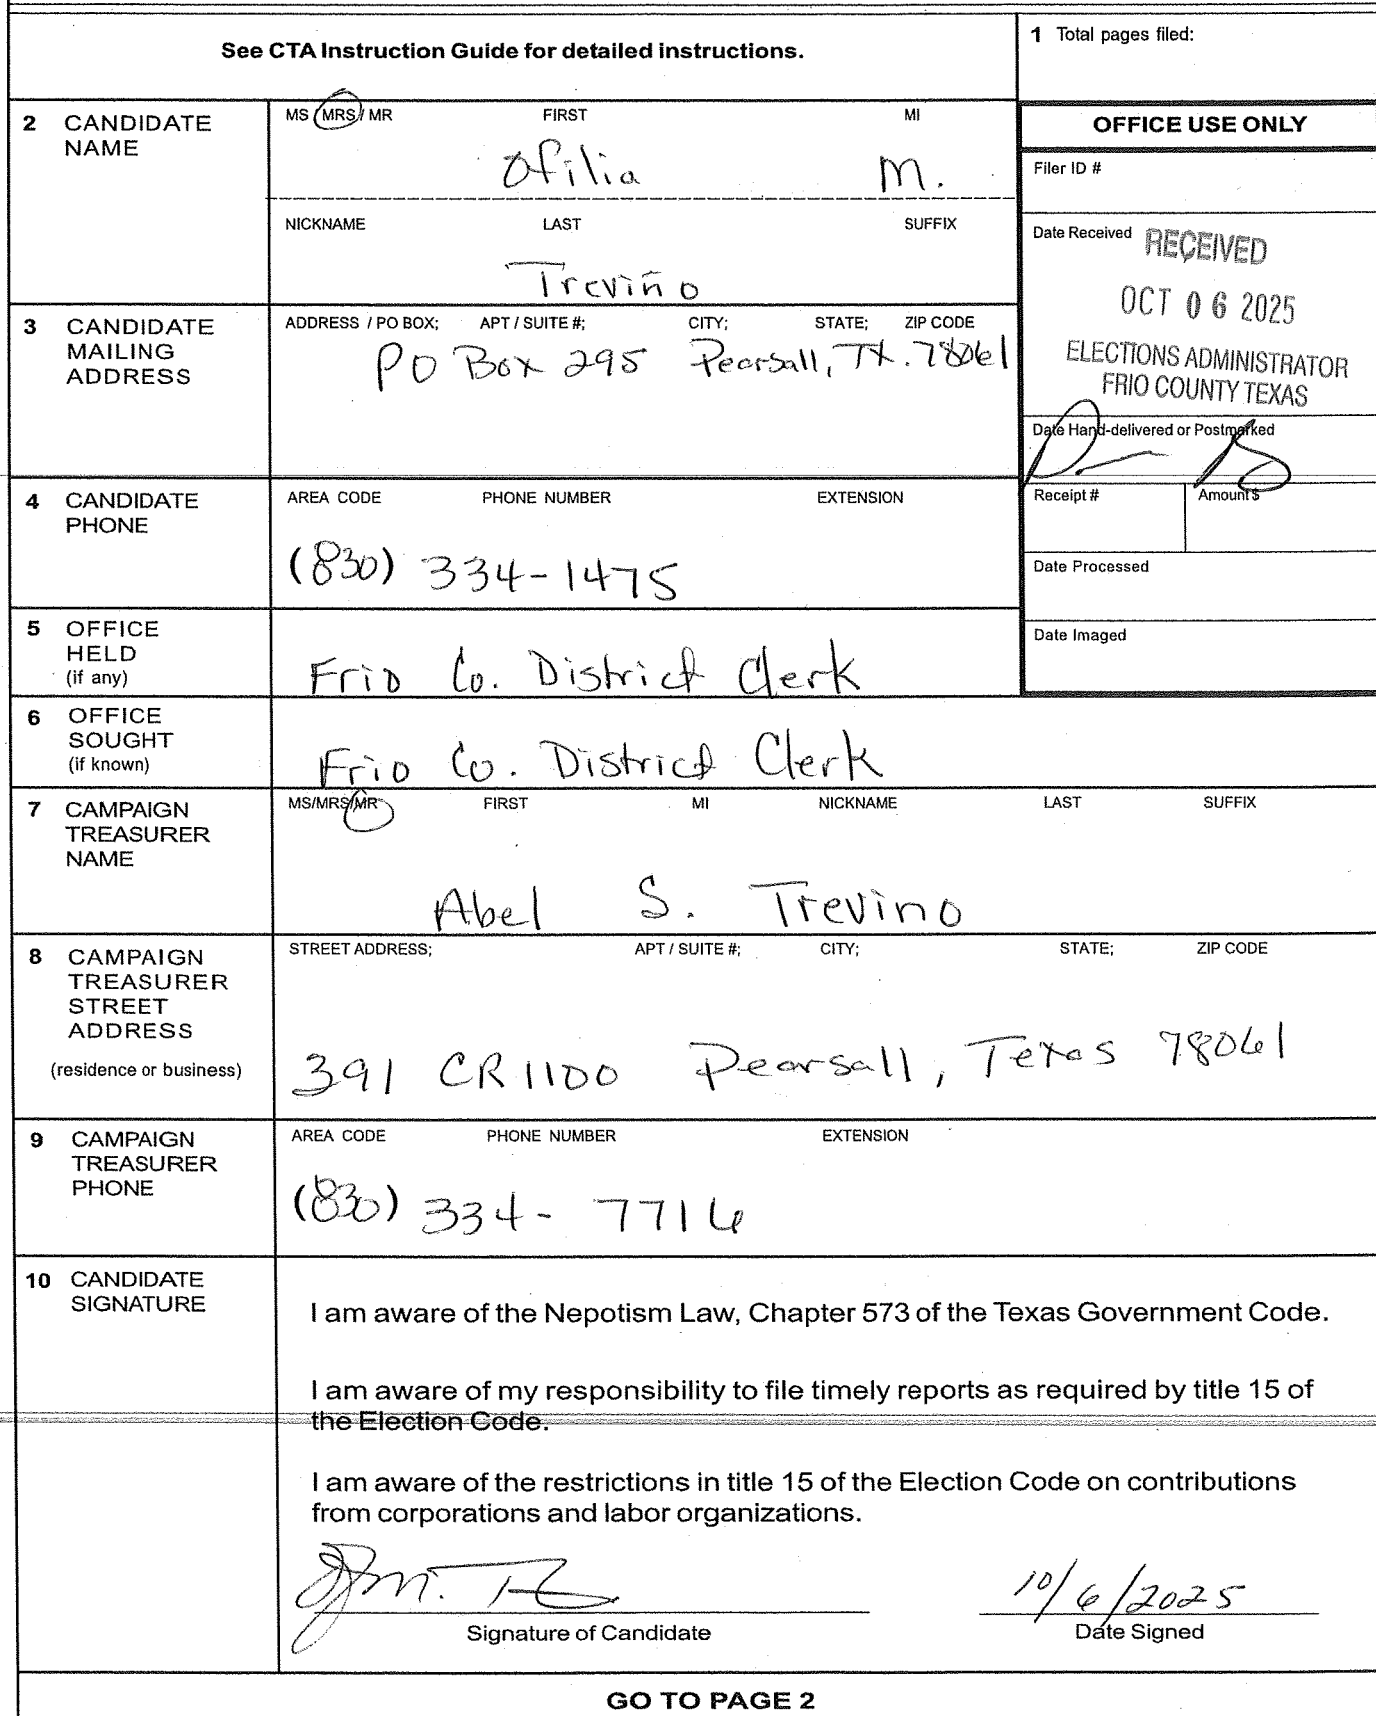 See CTA Instruction Guide for detailed instructions.
1 Total pages filed:
2 CANDIDATE NAME
MS / MRS / MR FIRST MI
Ofilia M.
NICKNAME LAST SUFFIX
Treviño
OFFICE USE ONLY
Filer ID #
Date Received
RECEIVED
OCT 06 2025
ELECTIONS ADMINISTRATOR
FRIO COUNTY TEXAS
Date Hand-delivered or Postmarked
Receipt # Amount $
Date Processed
Date Imaged
3 CANDIDATE MAILING ADDRESS
ADDRESS / PO BOX; APT / SUITE #; CITY; STATE; ZIP CODE
PO Box 295 Pearsall, TX. 78061
4 CANDIDATE PHONE
AREA CODE PHONE NUMBER EXTENSION
(830) 334-1475
5 OFFICE HELD (if any)
Frio Co. District Clerk
6 OFFICE SOUGHT (if known)
Frio Co. District Clerk
7 CAMPAIGN TREASURER NAME
MS/MRS/MR FIRST MI NICKNAME LAST SUFFIX
Abel S. Trevino
8 CAMPAIGN TREASURER STREET ADDRESS (residence or business)
STREET ADDRESS; APT / SUITE #; CITY; STATE; ZIP CODE
391 CR 1100 Pearsall, Texas 78061
9 CAMPAIGN TREASURER PHONE
AREA CODE PHONE NUMBER EXTENSION
(830) 334-7716
10 CANDIDATE SIGNATURE
I am aware of the Nepotism Law, Chapter 573 of the Texas Government Code.
I am aware of my responsibility to file timely reports as required by title 15 of
the Election Code.
I am aware of the restrictions in title 15 of the Election Code on contributions
from corporations and labor organizations.
10/6/2025
Signature of Candidate Date Signed
GO TO PAGE 2